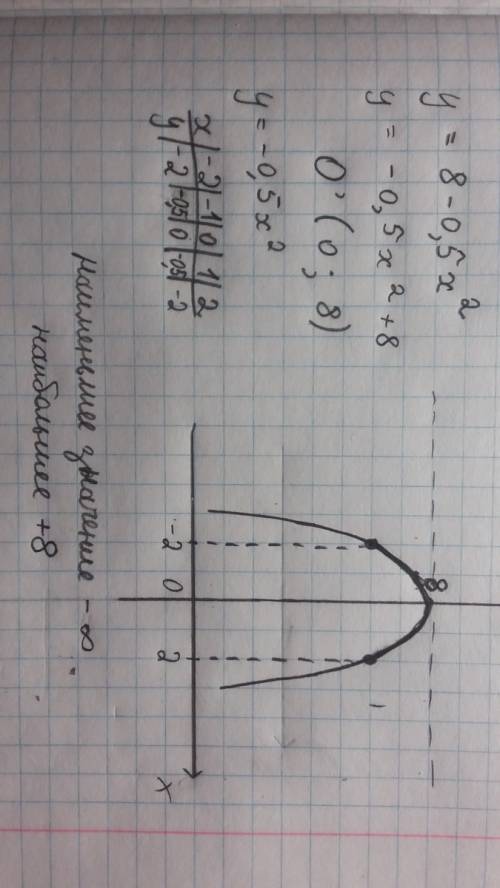 y = 8 - 0,5x²
y = -0,5x² + 8
O' (0; 8)
y = -0,5x²
x | -2 | -1 | 0 | 1 | 2
y | -2 | -0,5 | 0 | -0,5 | -2
8
-2 0 2 x
Наименьшее значение -∞
наибольшее +8